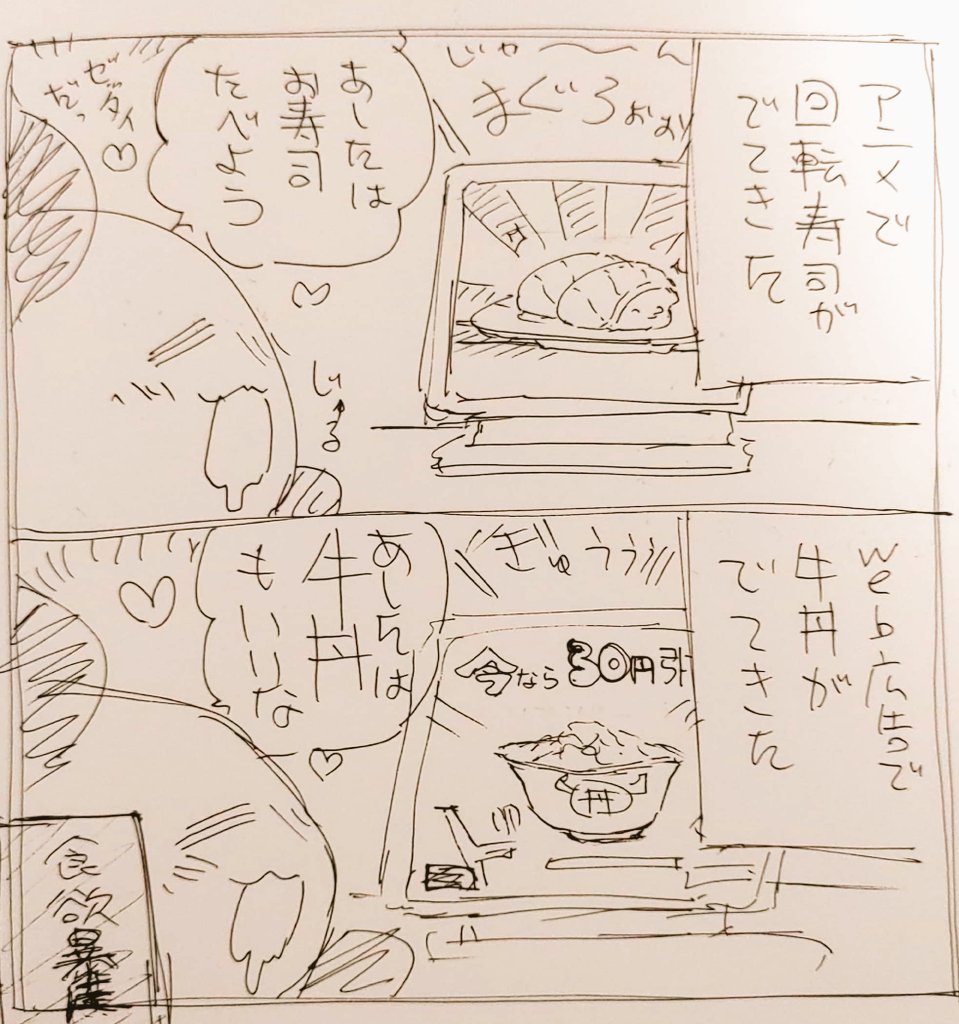 アニメで
回転寿司が
でてきた
じゃ〜〜ん
まぐろぉぉ
あしたは
お寿司
たべよう
ゼッタイ
だっ
♡
♡
じゅる
web広告で
牛丼が
でてきた
ぎゅううぅ
今なら30円引
丼
あしたは
牛丼
もいいな
♡
♡
食欲